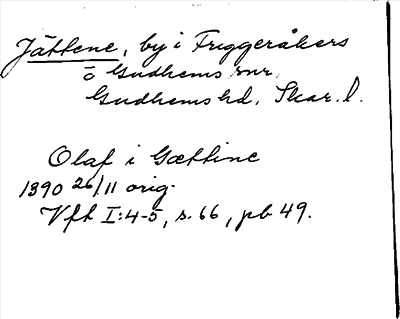 Jättene, by i Friggeråkers
o Gudhems snr.
Gudhems hd. Skar. l.
Olaf i Gættine
1390 26/11 orig.
Vfk I:4-5, s. 66, pb 49.